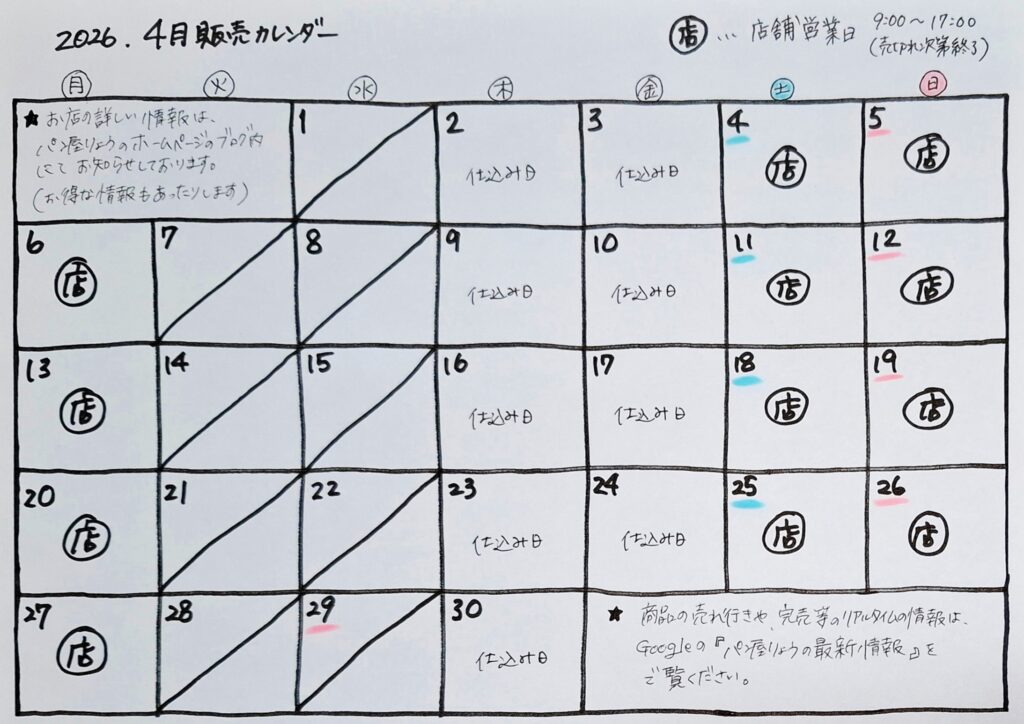 2026. 4月販売カレンダー
店 … 店舗営業日 9:00～17:00
(売切れ次第終了)
月 火 水 木 金 土 日
★ お店の詳しい情報は、
パン屋りょうのホームページのブログ内
にて お知らせしております。
(お得な情報もあったりします)
1 2 3 4 5
仕込み日 仕込み日 店 店
6 7 8 9 10 11 12
店 仕込み日 仕込み日 店 店
13 14 15 16 17 18 19
店 仕込み日 仕込み日 店 店
20 21 22 23 24 25 26
店 仕込み日 仕込み日 店 店
27 28 29 30
店 仕込み日
★ 商品の売れ行きや 完売等のリアルタイムの情報は、
Googleの『パン屋りょうの最新情報』を
ご覧ください。